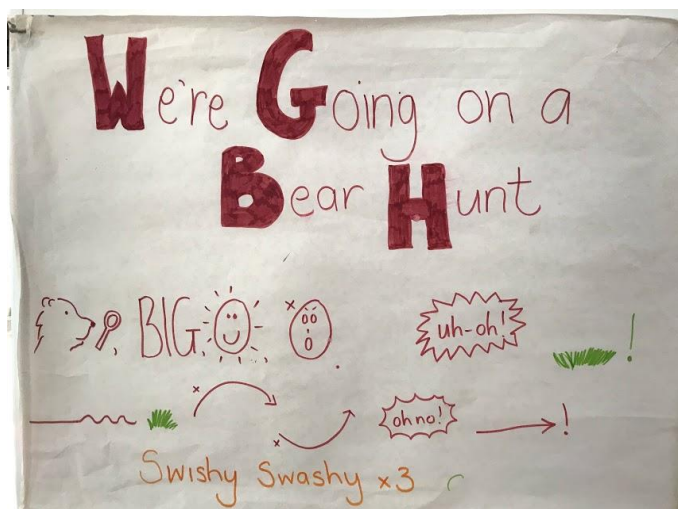 We're Going on a
Bear Hunt
BIG
uh-oh!
!
oh no!
!
Swishy Swashy x3